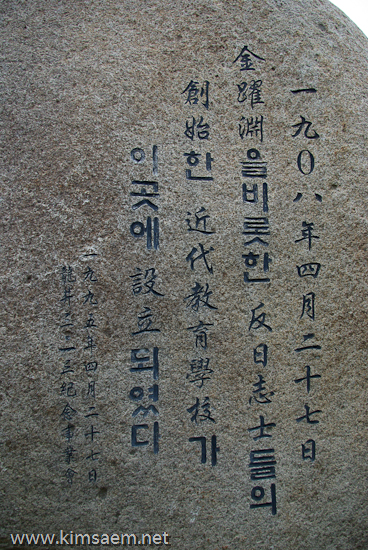 一九〇八年四月二十七日
金躍淵을비롯한 反日志士들의
創始한 近代教育學校가
이곳에 設立되였다
一九九五年四月二十七日
龍井三·一三纪念事業會
www.kimsaem.net